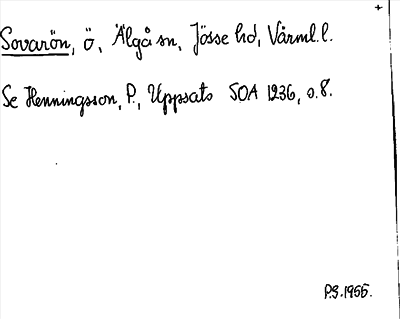 +
Sovarön, ö, Älgå sn, Jösse hd, Värml. l.
Se Henningsson, P., Uppsats SOA 1236, s. 8.
P.S. 1955.